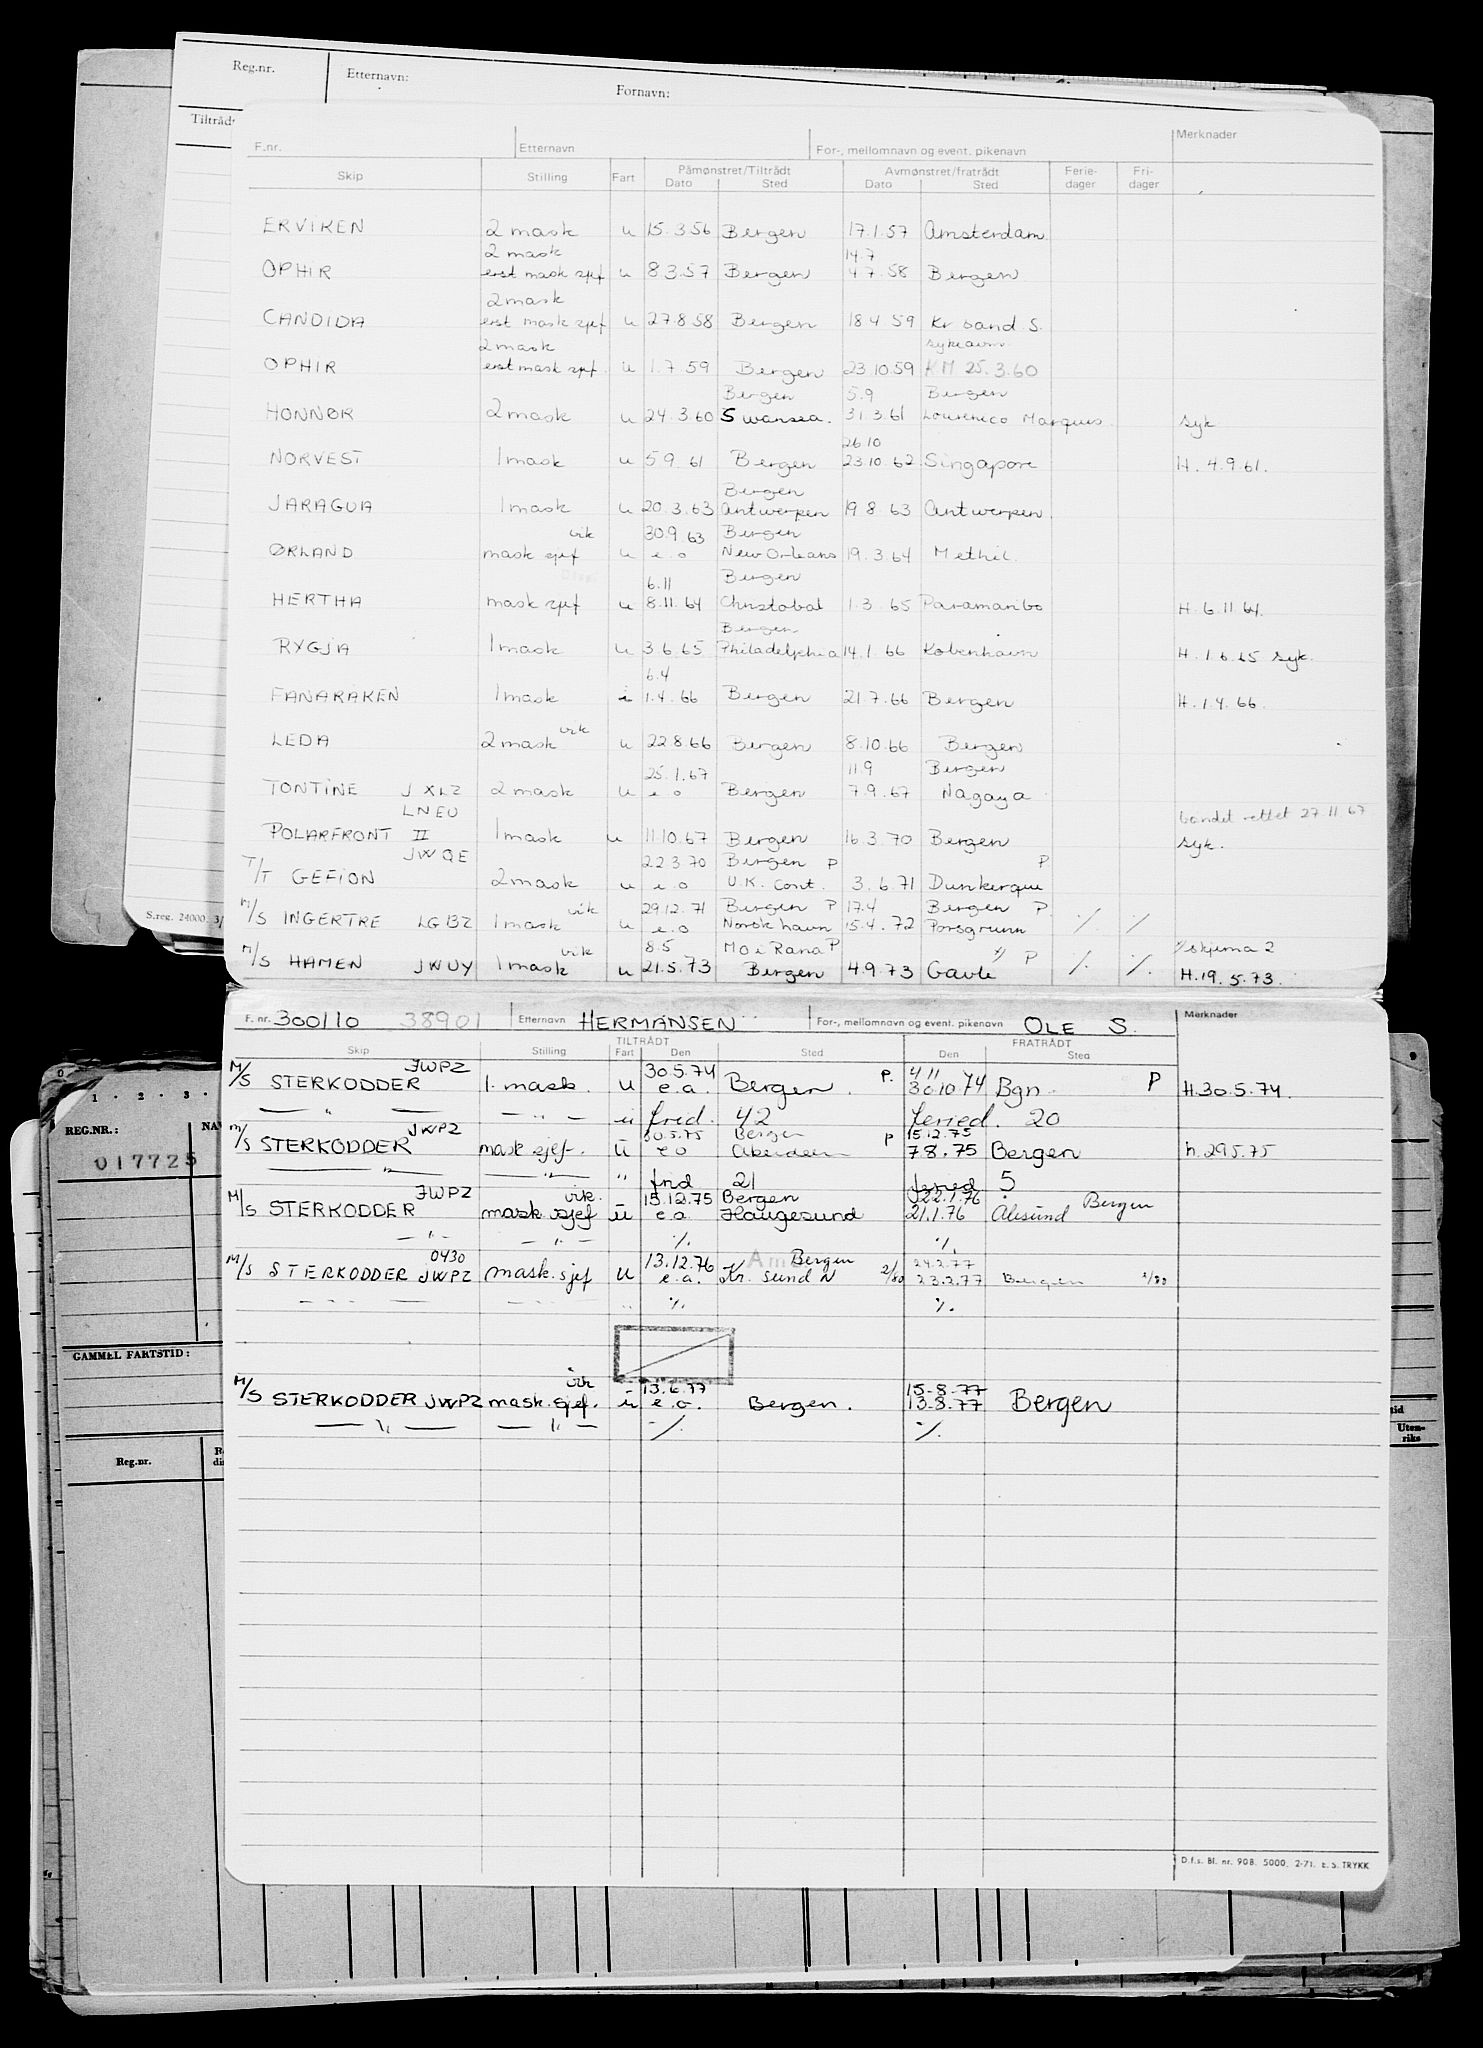 Reg.nr. Etternavn: Fornavn:
Tiltrådt
F.nr. Etternavn For-, mellomnavn og event. pikenavn Merknader
Skip Stilling Fart Påmønstret/Tiltrådt Avmønstret/fratrådt Ferie- Fri-
Dato Sted Dato Sted dager dager
ERVIKEN 2 mask u 15.3.56 Bergen 17.1.57 Amsterdam
2 mask 14.7
OPHIR erst mask sjef u 8.3.57 Bergen 4.7.58 Bergen
2 mask
CANDIDA erst mask sjef u 27.8.58 Bergen 18.4.59 Kr sand S.
2 mask sykeavm.
OPHIR erst mask sjef. u 1.7.59 Bergen 23.10.59 KM 25.3.60
Bergen 5.9 Bergen
HONNØR 2 mask u 24.3.60 Swansea. 31.3.61 Lourenico Marques syk
26.10
NORVEST 1 mask u 5.9.61 Bergen 23.10.62 Singapore H. 4.9.61.
Bergen
JARAGUA 1 mask u 20.3.63 Antwerpen 19.8.63 Antwerpen
vik 30.9.63 Bergen
ØRLAND mask sjef u e.o New Orleans 19.3.64 Methil.
6.11 Bergen
HERTHA mask sjef u 8.11.64 Christobal 1.3.65 Paramaribo H. 6.11.64.
Bergen
RYGJA 1 mask u 3.6.65 Philadelphia 14.1.66 København H. 1.6.65 syk.
6.4
FANARÅKEN 1 mask i 1.4.66 Bergen 21.7.66 Bergen H. 1.4.66.
vik
LEDA 2 mask u 22.8.66 Bergen 8.10.66 Bergen
25.1.67 11.9 Bergen
TONTINE JXLZ 2 mask u e.o Bergen 7.9.67 Nagaya
LNEU bandet rettet 27.11.67
POLARFRONT II 1 mask u 11.10.67 Bergen 16.3.70 Bergen syk.
JWQE 22.3.70 Bergen P P
T/T GEFION 2 mask u e.o U.K. Cont. 3.6.71 Dunkerque
vik 29.12.71 Bergen P 17.4 Bergen P
M/S INGERTRE LGBZ 1 mask u e.o Norsk havn 15.4.72 Porsgrunn ./. ./.
vik 8.5 Mo i Rana P P skjema 2
M/S HAMEN JWUY 1 mask u 21.5.73 Bergen 4.9.73 Gavle ./. ./. H.19.5.73.
S.reg. 24000. 3/
F. nr. 300110 38901 Etternavn HERMANSEN For-, mellomnavn og event. pikenavn OLE S. Merknader
TILTRÅDT FRATRÅDT
Skip Stilling Fart Den Sted Den Sted
JWPZ 30.5.74 P. 4/11 P
M/S STERKODDER 1. mask. u e.a. Bergen. 30.10.74 Bgn. H.30.5.74.
— " — — " — u frid. 42 feried. 20
JWPZ 30.5.75 Bergen P 15.12.75
M/S STERKODDER mask sjef. u e o Aberdeen 7.8.75 Bergen h.29.5.75
— " — — " — " frid 21 feried 5
JWPZ vik. 15.12.75 Bergen 22.1.76 Bergen
M/S STERKODDER mask sjef u e.a. Haugesund 21.1.76 Ålesund
— " — — " — ./. ./.
0430 13.12.76 Bergen 24.2.77
M/S STERKODDER JWPZ mask. sjef u e.a. Kr. sund N 2/80 23.2.77 Bergen 2/80
— " — — " — " ./. ./.
vik 13.6.77 15-8-77
M/S STERKODDER JWPZ mask. sjef. u e.o. Bergen. 13.8.77 Bergen
— " — — " — ./. ./.
D.f.s. Bl. nr. 908. 5000. 2-71. E.S. TRYKK
REG.NR.:
017725
GAMMEL FARTSTID:
Reg.nr.
Uten-
riks